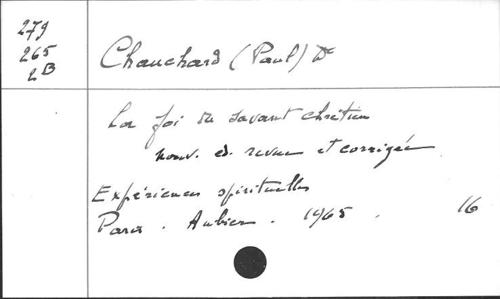 279
265
2B
Chauchard (Paul) Dr
La foi du savant chrétien
nouv. ed. revue et corrigée
Expériences spirituelles
Paris. Aubier. 1965. 16